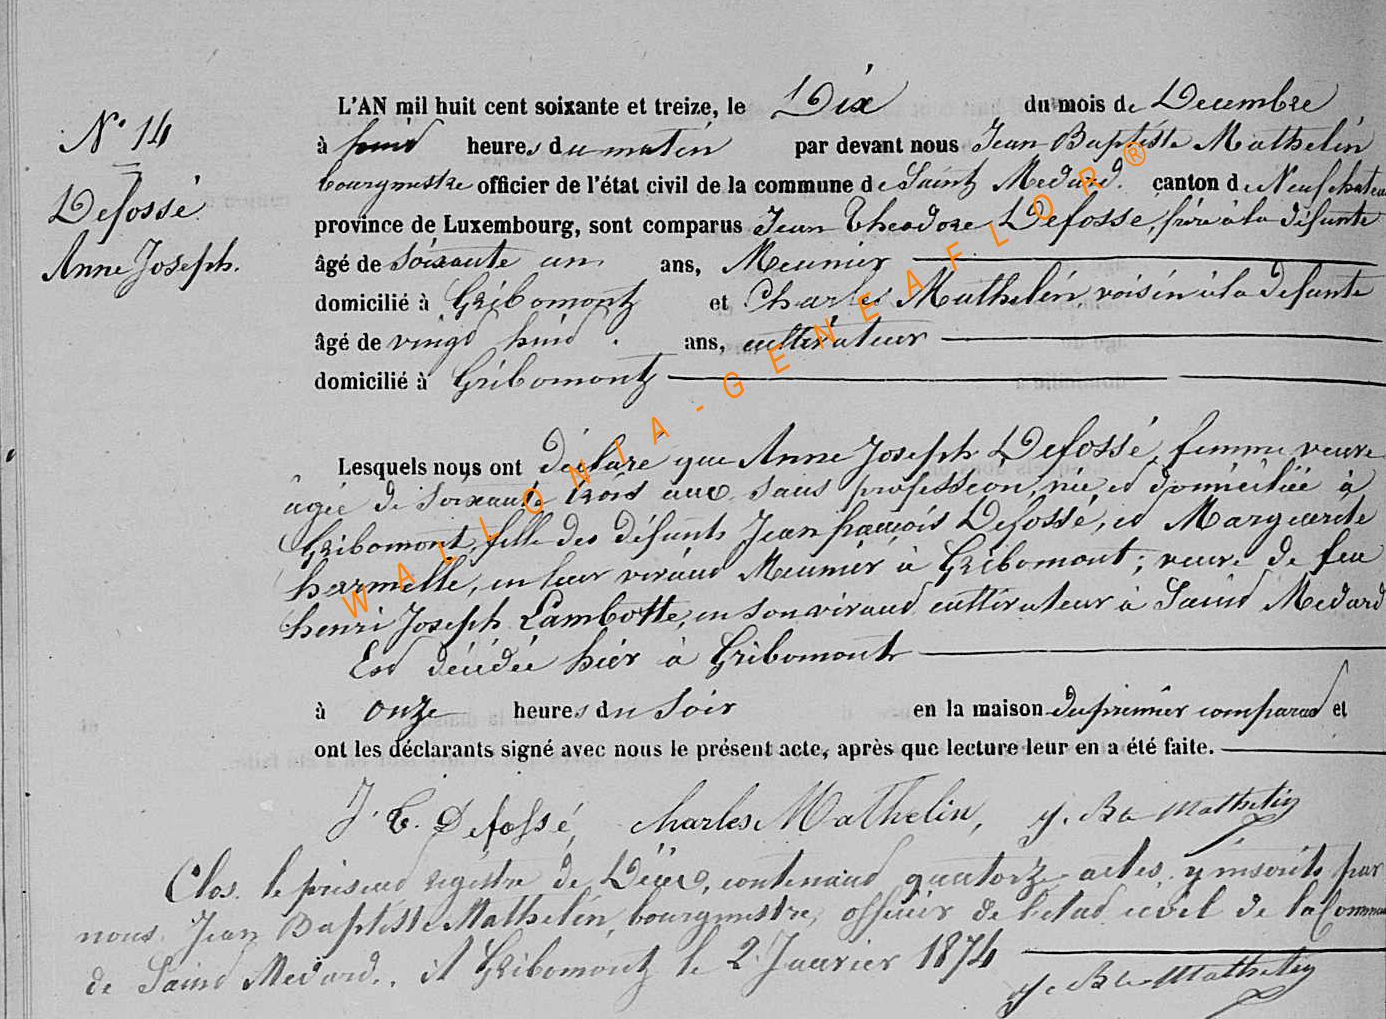 N° 14
Defossé
Anne Joseph.
L'AN mil huit cent soixante et treize, le Dix du mois de Decembre
à huid heures du matin par devant nous Jean Baptiste Mathelin
bourgmestre officier de l'état civil de la commune de Saint Medard. canton de Neufchateau
province de Luxembourg, sont comparus Jean Theodore Defossé, frère à la défunte
âgé de soixante un ans, Meunier
domicilié à Gribomont et Charles Mathelin voisin à la defunte
âgé de vingd huid . ans, cultivateur
domicilié à Gribomont
Lesquels nous ont déclaré que Anne Joseph Defossé, femme veuve
âgée de soixante trois ans sans profession, née et domiciliée à
Gribomont, fille des défunts Jean françois Defossé, et Marguerite
harmelle, en leur vivand Meunier à Gribomont; veuve de feu
henri Joseph Lambotte, en son vivand cultivateur à Saind Medard
Esd décédée hier à Gribomont
à onze heures du soir en la maison du primier comparand et
ont les déclarants signé avec nous le présent acte, après que lecture leur en a été faite.
J. T. Defossé, charles Mathelin, J. Bte Mathelin
Clos. le présend régistre de Décès, contenand quatorze actes y inscrits par
nous Jean Baptiste Mathelin, bourgmestre, officier de l'etad civil de la Commune
de Saind Medard. A Gribomont le 2 Janvier 1874
J. Bte Mathelin
WALLONIA-GENEAFLOR®